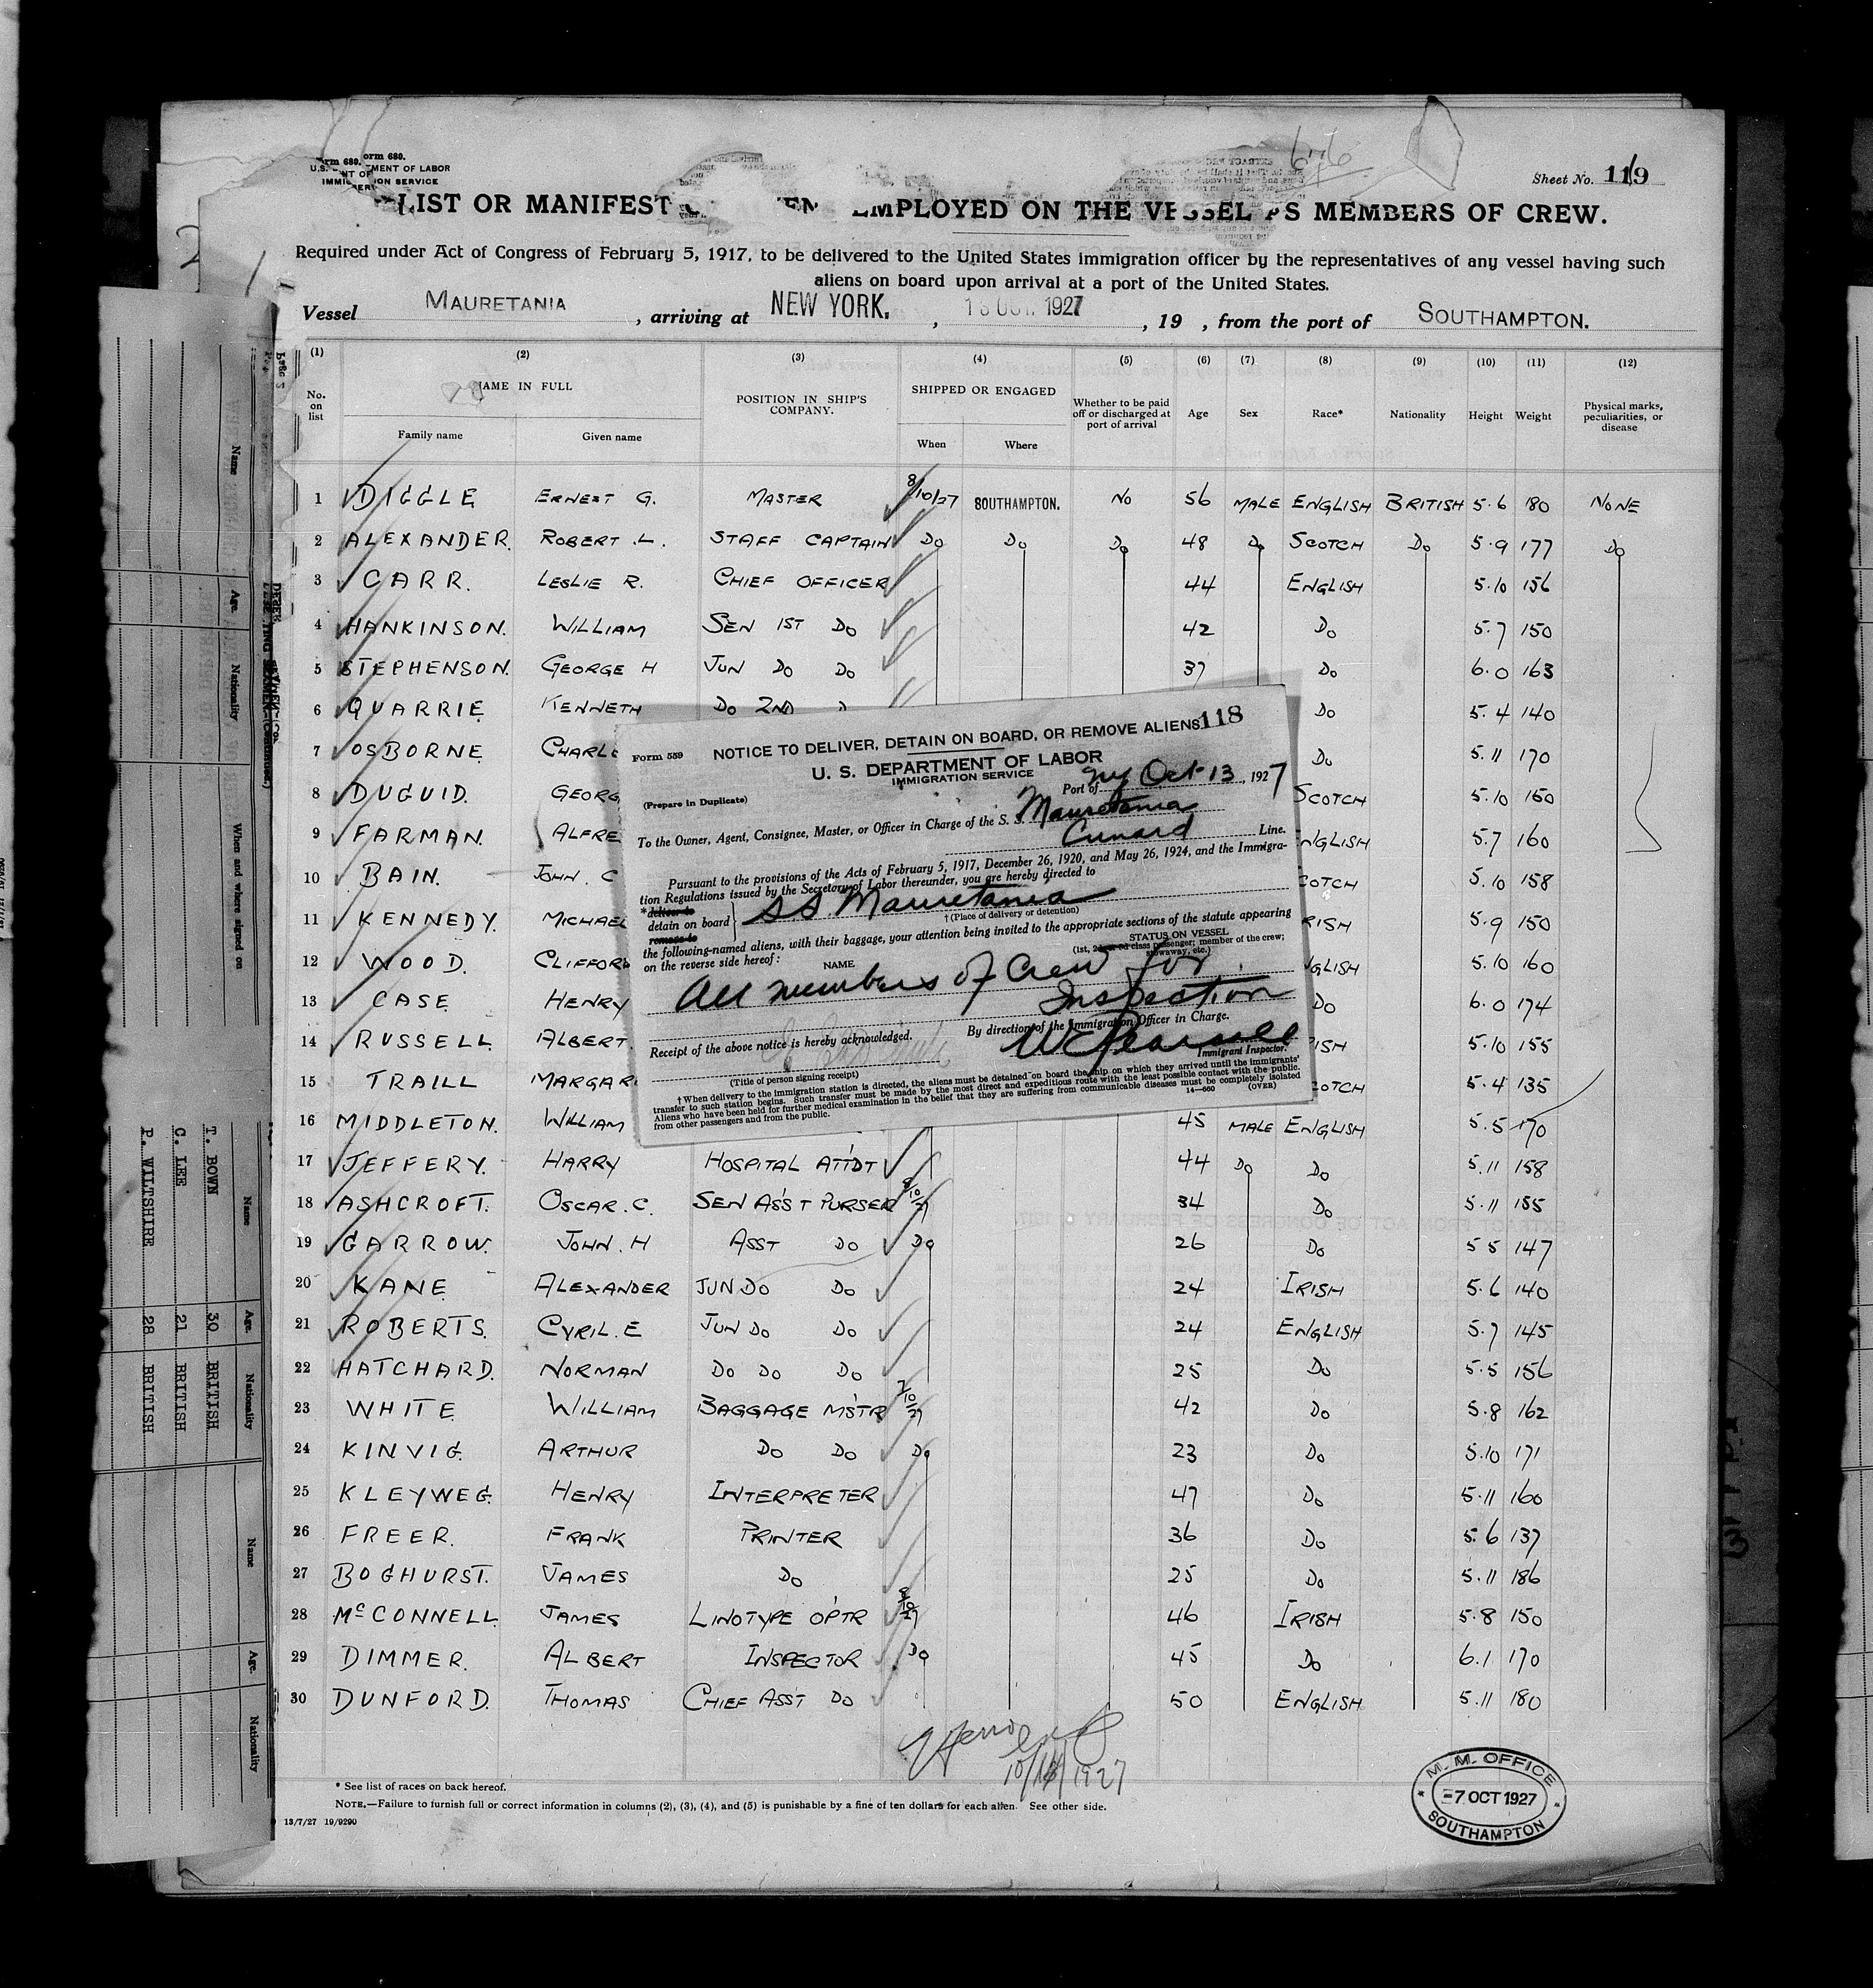 Form 689.
U.S. DEPARTMENT OF LABOR
IMMIGRATION SERVICE
Sheet No. 119
LIST OR MANIFEST EMPLOYED ON THE VESSEL AS MEMBERS OF CREW.
Required under Act of Congress of February 5, 1917, to be delivered to the United States immigration officer by the representatives of any vessel having such
aliens on board upon arrival at a port of the United States.
Vessel MAURETANIA, arriving at NEW YORK., 13 OCT. 1927, 19 , from the port of SOUTHAMPTON.
(1) (2) (3) (4) (5) (6) (7) (8) (9) (10) (11) (12)
No. on list NAME IN FULL Family name Given name POSITION IN SHIP'S COMPANY. SHIPPED OR ENGAGED When Where Whether to be paid off or discharged at port of arrival Age Sex Race* Nationality Height Weight Physical marks, peculiarities, or disease
1 DIGGLE ERNEST G. MASTER 8/10/27 SOUTHAMPTON. NO 56 MALE ENGLISH BRITISH 5.6 180 NONE
2 ALEXANDER. ROBERT .L. STAFF CAPTAIN Do Do Do 48 Do SCOTCH Do 5.9 177 Do
3 CARR. LESLIE R. CHIEF OFFICER 44 ENGLISH 5.10 156
4 HANKINSON. WILLIAM SEN 1ST Do 42 Do 5.7 150
5 STEPHENSON. GEORGE H JUN Do Do 37 Do 6.0 163
6 QUARRIE KENNETH Do 2ND Do 5.4 140
7 OSBORNE CHARLE Do 5.11 170
8 DUGUID. GEORG SCOTCH 5.10 150
9 FARMAN. ALFRE NGLISH 5.7 160
10 BAIN. JOHN. C COTCH 5.10 158
11 KENNEDY. MICHAEL RISH 5.9 150
12 WOOD. CLIFFORD GLISH 5.10 160
13 CASE HENRY Do 6.0 174
14 RUSSELL ALBERT. ISH 5.10 155
15 TRAILL MARGAR COTCH 5.4 135
16 MIDDLETON. WILLIAM 45 MALE ENGLISH 5.5 170
17 JEFFERY. HARRY HOSPITAL ATT'DT 44 Do Do 5.11 158
18 ASHCROFT. OSCAR.C. SEN ASS'T PURSER 8/10/27 34 Do 5.11 155
19 GARROW. JOHN.H ASST Do Do 26 Do 5 5 147
20 KANE ALEXANDER JUN Do Do 24 IRISH 5.6 140
21 ROBERTS. CYRIL.E JUN Do Do 24 ENGLISH 5.7 145
22 HATCHARD. NORMAN Do Do Do 25 Do 5.5 156
23 WHITE WILLIAM BAGGAGE M'STR 7/10/27 42 Do 5.8 162
24 KINVIG. ARTHUR Do Do Do 23 Do 5.10 171
25 KLEYWEG. HENRY INTERPRETER 47 Do 5.11 160
26 FREER. FRANK PRINTER 36 Do 5.6 137
27 BOGHURST. JAMES Do 25 Do 5.11 186
28 McCONNELL JAMES LINOTYPE OP'TR 46 IRISH 5.8 150
29 DIMMER. ALBERT INSPECTOR Do 45 Do 6.1 170
30 DUNFORD. THOMAS CHIEF ASS'T Do 50 ENGLISH 5.11 180
10/13/1927
* See list of races on back hereof.
NOTE.—Failure to furnish full or correct information in columns (2), (3), (4), and (5) is punishable by a fine of ten dollars for each alien. See other side.
13/7/27 19/9290
M.M. OFFICE
-7 OCT 1927
SOUTHAMPTON
118
Form 559
NOTICE TO DELIVER, DETAIN ON BOARD, OR REMOVE ALIENS
U. S. DEPARTMENT OF LABOR
IMMIGRATION SERVICE
(Prepare in Duplicate)
Port of NY Oct 13, 1927
To the Owner, Agent, Consignee, Master, or Officer in Charge of the S. S. Mauretania
Cunard Line.
Pursuant to the provisions of the Acts of February 5, 1917, December 26, 1920, and May 26, 1924, and the Immigra-
tion Regulations issued by the Secretary of Labor thereunder, you are hereby directed to
*deliver to
detain on board
remove to
SS Mauretania
† (Place of delivery or detention)
the following-named aliens, with their baggage, your attention being invited to the appropriate sections of the statute appearing
on the reverse side hereof:
NAME
STATUS ON VESSEL
(1st, 2d, or 3d class passenger; member of the crew; stowaway, etc.)
All members of Crew for
Inspection
Receipt of the above notice is hereby acknowledged.
By direction of the Immigration Officer in Charge.
Immigrant Inspector.
(Title of person signing receipt)
† When delivery to the immigration station is directed, the aliens must be detained on board the ship on which they arrived until the immigrants'
transfer to such station begins. Such transfer must be made by the most direct and expeditious route with the least possible contact with the public.
Aliens who have been held for further medical examination in the belief that they are suffering from communicable diseases must be completely isolated
from other passengers and from the public.
14—660 (OVER)
Name Age. Nationality When and where signed on
Name Age. Nationality
T. BOWN 30 BRITISH
C. LEE 21 BRITISH
P. WILTSHIRE 28 BRITISH
Name Age. Nationality